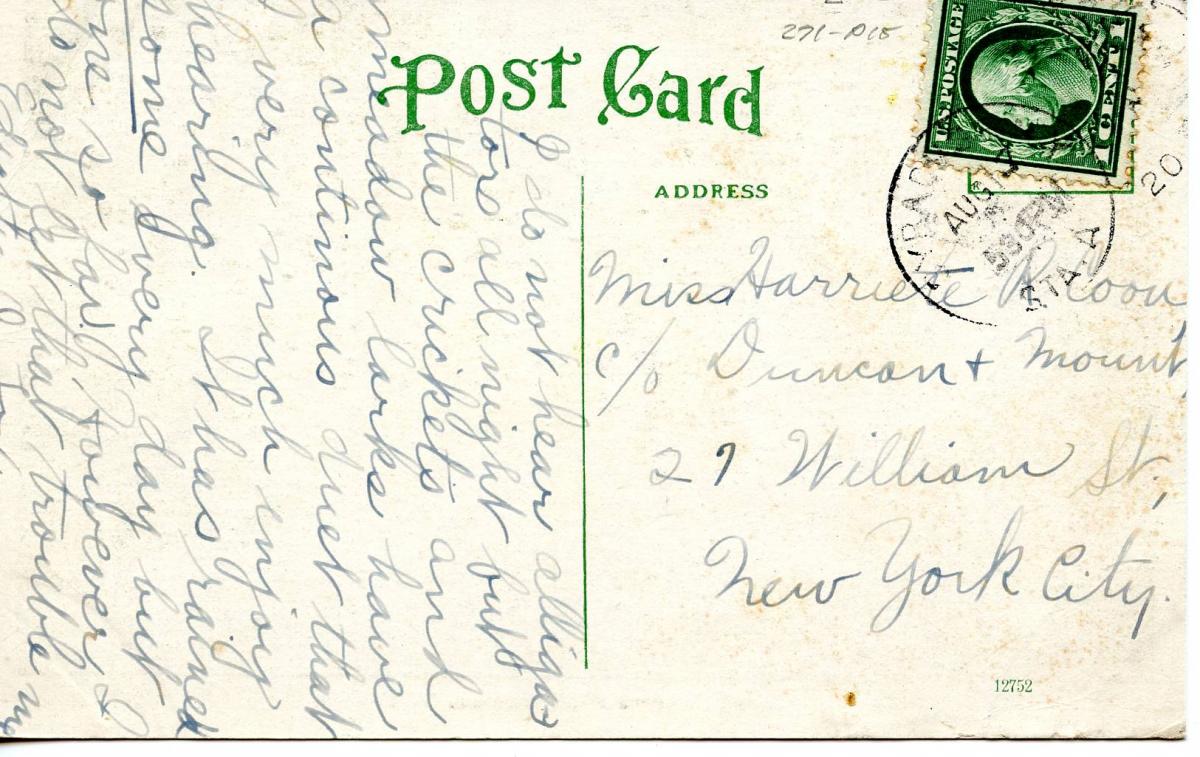 271-D15
POST CARD
U.S. POSTAGE
1 CENT 1
ADDRESS
AUG
530 PM
STA. A
20
Miss Harriete R. Coon
c/o Duncan & Mount
27 William St,
New York City.
12752
I do not hear alliga-
tors all night but
the crickets and
meadow larks have
a continous duet that
I very much enjoy
hearing. It has rained
some every day but
one so far. However I
do not let that trouble me